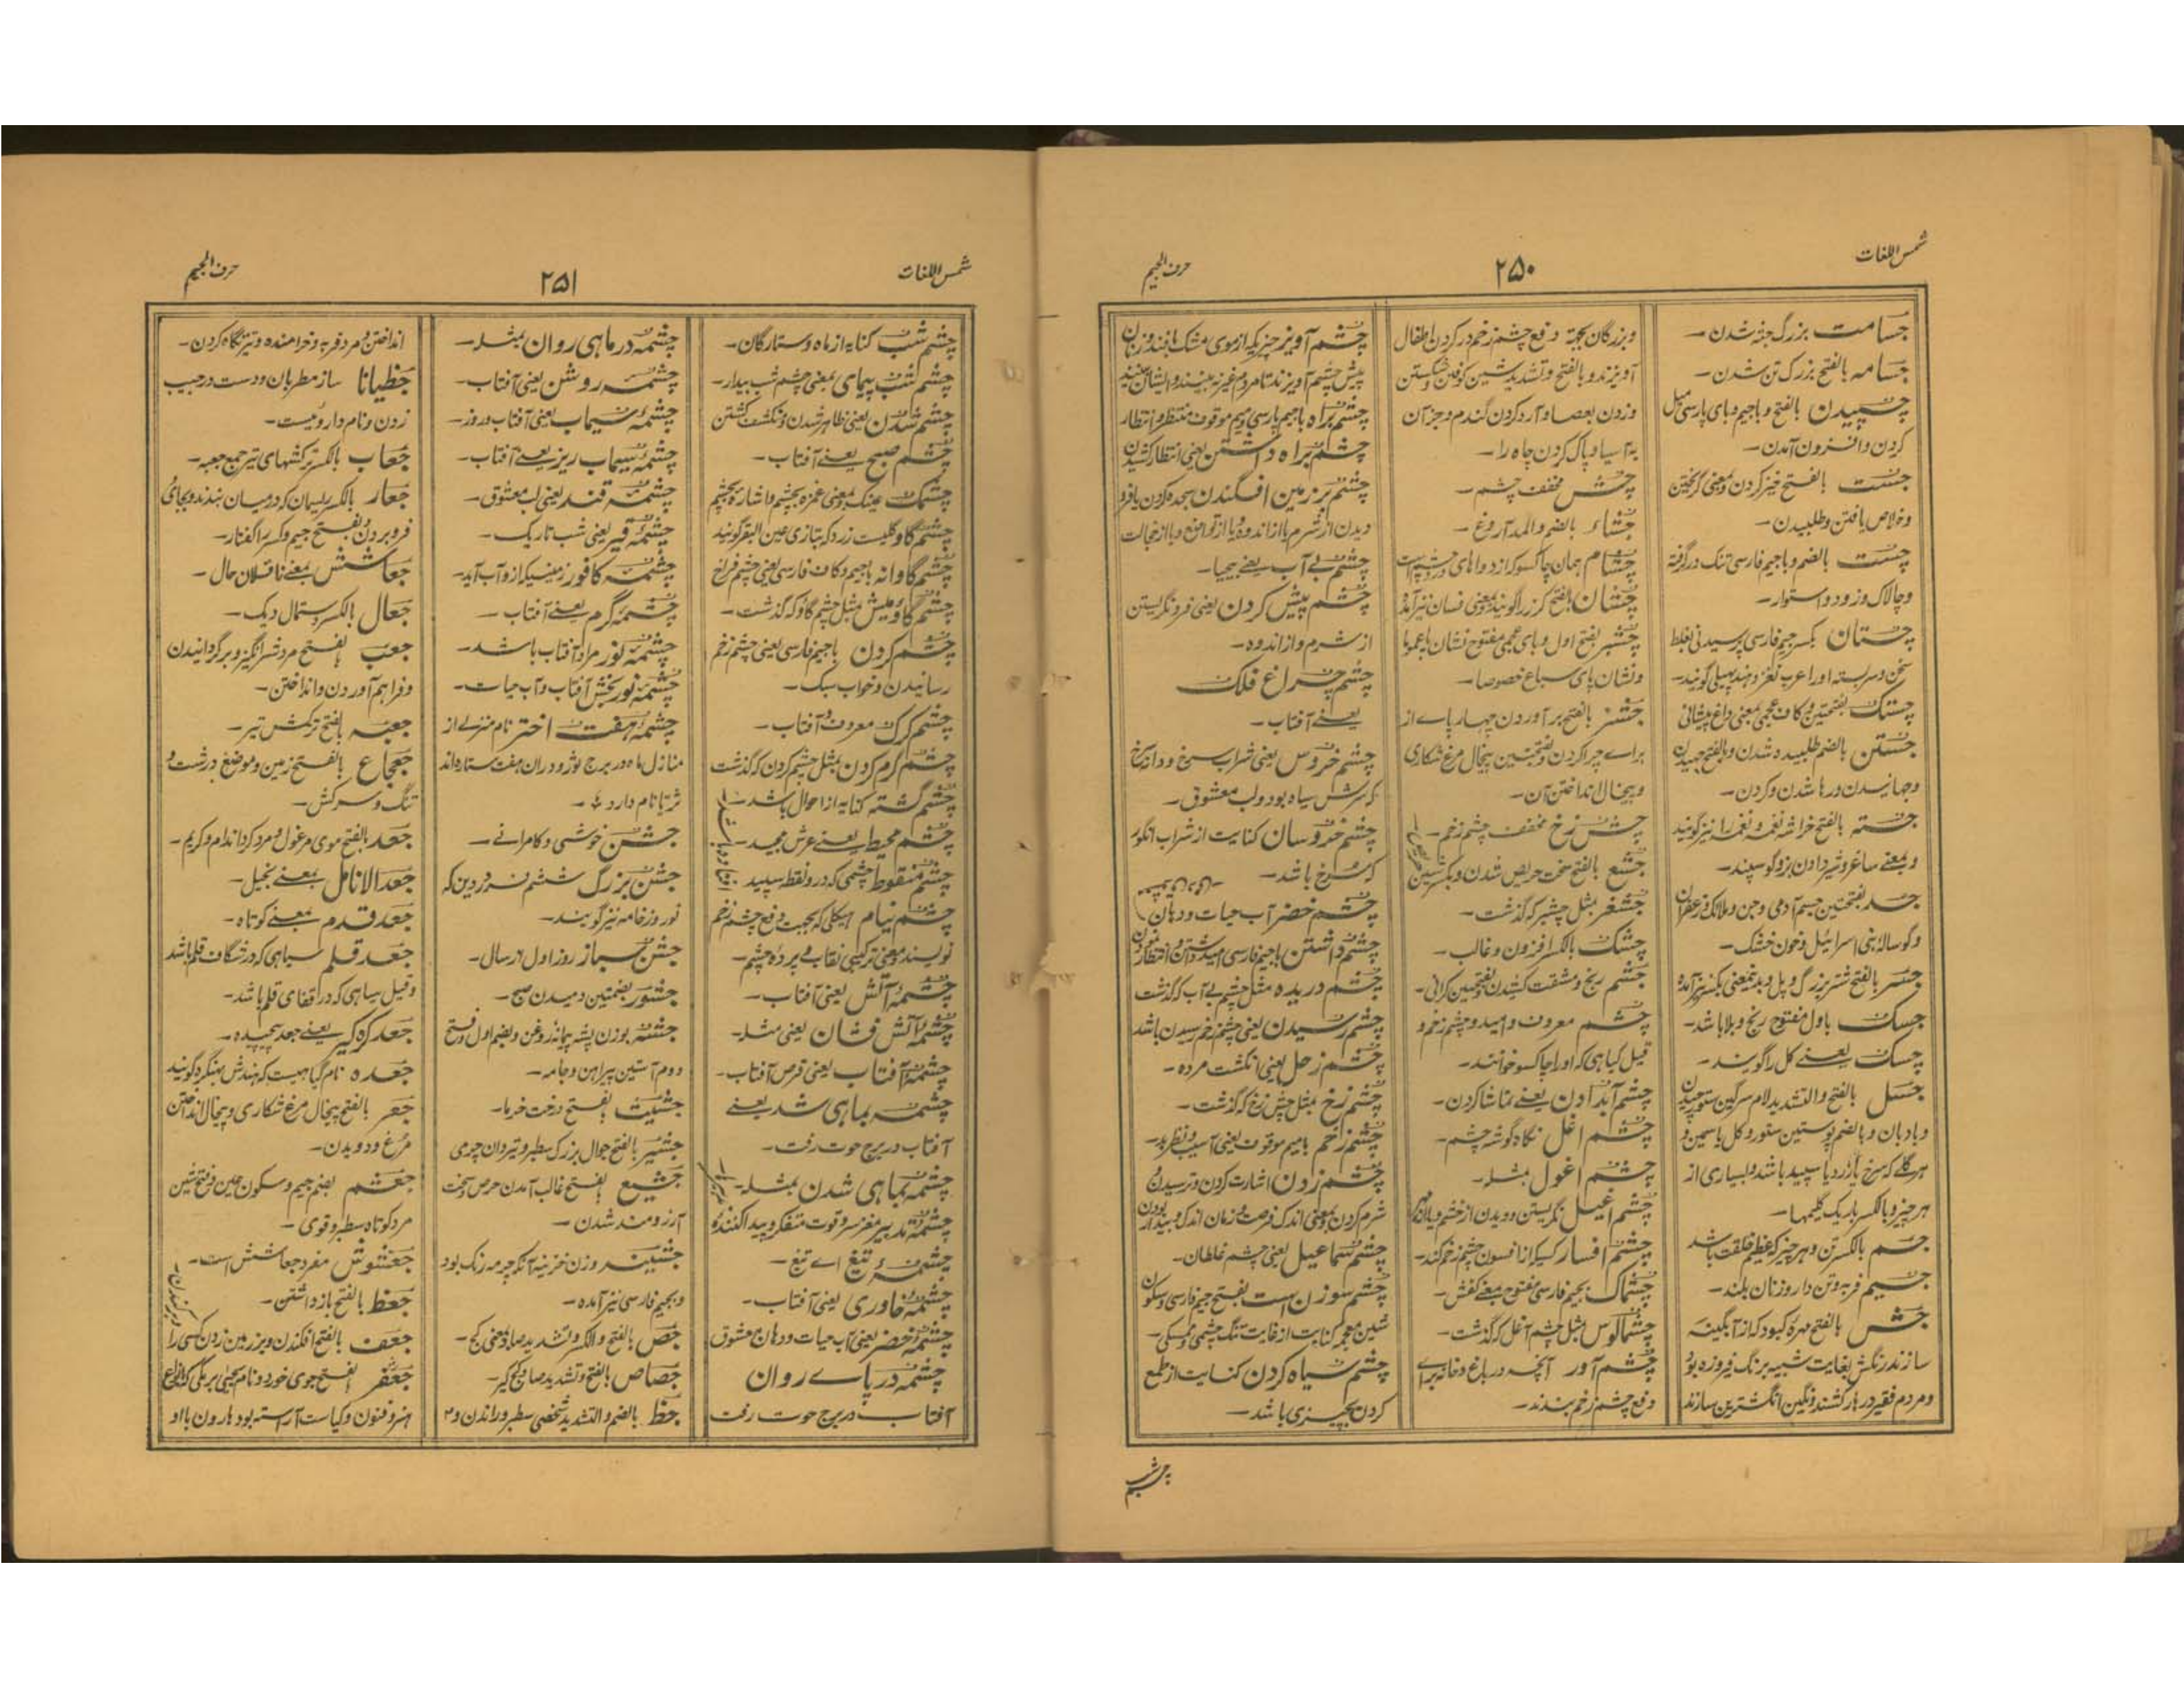 شمس اللغات
۲۵۰
حرف الجیم
جسامت بزرگ جثه شدن -
جسامه بالفتح بزرگ تن شدن -
چسپیدن بالفتح و باجیم و بای پارسی میل
کردن و افزون آمدن -
جست بالفتح خیز کردن و بمعنی گریختن
و خلاص یافتن و طلبیدن -
چست بالضم و باجیم فارسی تنگ در گرفته
و چالاک و زود و استوار -
چستان بکسر جیم فارسی پرسیدنی بغلط
سخن و سربسته او را عرب لغز و هند پهیلی گویند -
چستک بفتحتین و کاف عجمی بمعنی داغ پیشانی
جستن بالضم طلبیده شدن و بالفتح جهیدن
و جهانیدن و رها شدن و کردن -
جسته بالفتح خراشه نغمه و نغمه را نیز گویند
و بمعنے ساغر و شیر دادن بز و گوسپند -
جسد بفتحتین جسم آدمی و جن و ملائک و زعفران
و گوساله بنی اسرائیل و خون خشک -
جسر بالفتح شتر بزرگ و پل و بدینمعنی بکسر نیز آمده
جسک باول مفتوح رنج و بلا باشد -
چسک یعنے کل را گویند -
جسل بالفتح و التشدید لام سرگین ستور چیدن
و بادبان و بالضم پوستین ستور و گل یاسمین و
هر گلے که سرخ یا زرد یا سپید باشد و بسیاری از
هر چیز و بالکسر باریک گلیمها -
جسم بالکسر تن و هر چیز که عظیم خلقت باشد
جسیم فربه و تن دار و زنان بلند -
جش بالفتح مهره کبود که از آبگینه
سازند رنگش بغایت شبیه برنگ فیروزه بود
و مردم فقیر در هار کشند و نگین انگشترین سازند
و بزرگان بجهت دفع چشم زخم در گردن اطفال
آویزند و بالفتح و تشدید شین کوفتن و شکستن
و زدن بعصا و آرد کردن گندم و جز آن
بآسیا و پاک کردن چاه را -
چش مخفف چشم -
جشاء بالضم والمد آروغ -
چشام همان چاکسو که از دواهای درد چشم است
چشان بالفتح گز را گویند و بمعنی فسان نیز آمده
چشپر بفتح اول و بای عجمی مفتوح نشان پا عموما
و نشان پای سباع خصوصا -
جشر بالفتح بر آوردن چهارپاے از
براے چرا کردن و بفتحتین پیخال مرغ شکاری
و پیخال انداختن آن -
چش زخ مخفف چشم زخم -
جشع بالفتح سخت حریص شدن و بکسر شین
جشفر مثل چشپر که گذشت -
چشک بالکسر افزون و غالب -
جشم رنج و مشقت کشیدن و بفتحتین گرانی -
چشم معروف و امید و چشم زخم و
قیل گیاهی که او را چاکسو خوانند -
چشم آب دادن یعنے تماشا کردن -
چشم اغل نگاه گوشه چشم -
چشم اغول بمثله -
چشم اغیل نگریستن و دیدن از خشم و یا از مهر
چشم افسار کسیکه از افسون چشم زخم کند -
چشماک بجیم فارسی مفتوح بمعنے کفش -
چشمالوس مثل چشم آغل که گذشت -
چشم آور آنچه در باغ و خانه براے
دفع چشم زخم بندند -
چشم آویز چیزیکه از موی مشک بافند و زنان
پیش چشم آویزند تا مردم غیر نه بینند و ایشان بینند
چشم براه باجیم پارسی و میم موقوف منتظر و انتظار
چشم براه داشتن یعنی انتظار کشیدن
چشم بر زمین افگندن سجده کردن یا فرو
دیدن از شرم یا از اندوه و یا از تواضع و یا از خجالت
چشم بے آب یعنے بیحیا -
چشم پیش کردن یعنی فرو نگریستن
از شرم و از اندوه -
چشم چراغ فلک
یعنے آفتاب -
چشم خروس یعنی شراب سرخ و دانه سرخ
که سرش سیاه بود و لب معشوق -
چشم خروسان کنایت از شراب انگور
که سرخ باشد -
چشم خضر آب حیات و دهان
چشم داشتن باجیم فارسی امید داشتن و انتظار نمودن
چشم دریده مثل چشم بے آب که گذشت
چشم رسیدن یعنی چشم زخم رسیدن باشد
چشم زحل یعنی انگشت مرده -
چشم زخ بمثل چش زخ که گذشت -
چشم زخم بامیم موقوف یعنی آسیب نظر بد -
چشم زدن اشارت کردن و ترسیدن و
شرم کردن و بمعنی اندک فرصت و زمان اندک و بیدار بودن
چشم سماعیل یعنی چشم غلطان -
چشم سوزن است بفتح جیم فارسی و سکون
شین معجمه کنایت از غایت تنگ چشمی و ممسکی -
چشم سیاه کردن کنایت از طمع
کردن بچیزی باشد -
چشم شب
شمس اللغات
۲۵۱
حرف الجیم
چشم شب کنایه از ماه و ستارگان -
چشم شب پیمای بمعنی چشم شب بیدار -
چشم شدن یعنی ظاهر شدن و منکشف گشتن
چشم صبح یعنے آفتاب -
چشمک عینک و بمعنی غمزه بچشم و اشاره بچشم
چشم گاو گلیست زرد که بتازی عین البقر گویند
چشم گاوانه باجیم و کاف فارسی یعنی چشم فراخ
چشم گاومیش مثل چشم گاو که گذشت -
چشم کردن باجیم فارسی یعنی چشم زخم
رسانیدن و خواب سبک -
چشم گرگ معروف و آفتاب -
چشم گرم کردن بمثل چشم کردن که گذشت
چشم گشته کنایه از احول باشد -
چشم محیط یعنے عرش مجید -
چشم منقوط چشمی که در و نقطه سپید افتاده باشد
چشم نیام هیکلی که بجهت دفع چشم زخم
نویسند و معنی ترکیبی نقاب و پرده چشم -
چشمه آتش یعنی آفتاب -
چشمه آتش فشان یعنی مثله -
چشمه آفتاب یعنی قرص آفتاب -
چشمه بماهی شد یعنے
آفتاب در برج حوت رفت -
چشمه بماهی شدن بمثله -
چشمه تدبیر مغز سر و قوت متفکره پیدا کننده
چشمه تیغ اے تیغ -
چشمه خاوری یعنی آفتاب -
چشمه خضر یعنی آب حیات و دهان معشوق
چشمه درپاے روان
آفتاب در برج حوت رفت
چشمه در ماهی روان بمثله -
چشمه روشن یعنی آفتاب -
چشمه سیماب یعنی آفتاب و روز -
چشمه سیماب ریز یعنے آفتاب -
چشمه قند یعنی لب معشوق -
چشمه قیر یعنی شب تاریک -
چشمه کافور زمینیکه ازو آب آید -
چشمه گرم یعنے آفتاب -
چشمه نور مراد آفتاب باشد -
چشمه نور بخش آفتاب و آب حیات -
چشمه هفت اختر نام منزلے از
منازل ماه در برج ثور و دران هفت ستاره اند
ثریا نام دارد -
جشن خوشی و کامرانے -
جشن بزرگ ششم فروردین که
نوروز خامه نیز گویند -
جشن سباز روز اول از سال -
جشور بضمتین دمیدن صبح -
جشنه بوزن پشه پیمانه روغن و بضم اول و فتح
دوم آستین پیراهن و جامه -
جشیت بفتح درخت خرما -
جشیر بالفتح جوال بزرگ سطبر و تیردان چرمی
جشیع بفتح غالب آمدن حرص و سخت
آرزومند شدن -
جشینه وزن خزینه آنکه چرمه رنگ بود
و بجیم فارسی نیز آمده -
جص بالفتح و الکسر و تشدید صاد بمعنی گچ -
جصاص بالفتح و تشدید صاد گچ گر -
جظ بالضم و التشدید شخصی سطبر و راندن و
انداختن و مرد فربه و خرامنده و تیز نگاه کردن -
جظیانا ساز مطربان و دست در جیب
زدن و نام داروئیست -
جعاب بالکسر ترکشهای تیر جمع جعبه -
جعار بالکسر ریسمان که در میان بندند و بجای
فرو بردن و بفتح جیم و کسر را کفتار -
جعاشش بمعنے ناقلان حال -
جعال بالکسر دستمال دیک -
جعب بفتح مرد شرانگیز و برگردانیدن
و فراهم آوردن و انداختن -
جعبه بالفتح ترکش تیر -
جعجاع بالفتح زمین و موضع درشت و
تنگ و سرکش -
جعد بالفتح موی مرغول و مرد گرد اندام و کریم -
جعد الانامل بمعنے بخیل -
جعد قدم بمعنے کوتاه -
جعد قلم سیاهی که در شگاف قلم باشد
و قیل سیاهی که در قفای قلم باشد -
جعد گره گیر یعنے جعد پیچیده -
جعده نام گیاهیست که هندش بهنگره گویند
جعر بالفتح پیخال مرغ شکاری و پیخال انداختن
مرغ و دویدن -
جعشم بضم جیم و سکون عین و فتح شین
مرد کوتاه سطبر و قوی -
جعشوش مفرد جعاشش است -
جعظ بالفتح باز داشتن -
جعف بالفتح افگندن و بر زمین زدن کسی را
جعفر بفتح جوی خورد و نام یحیی برمکی که بانواع
هنر و فنون و کیاست آراسته بود هارون با او